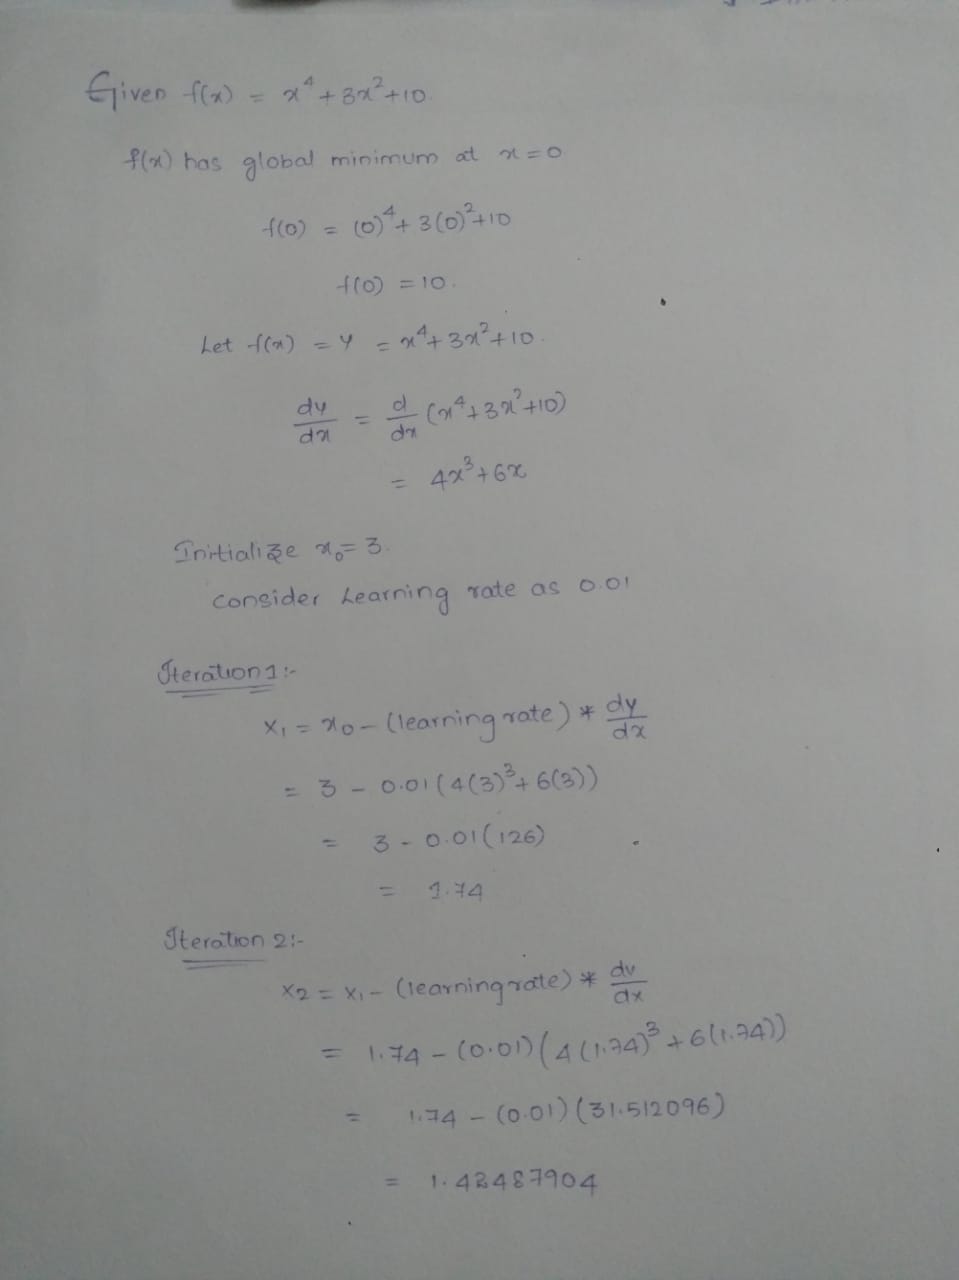 Given f(x) = x⁴+3x²+10.
f(x) has global minimum at x=0
f(0) = (0)⁴+3(0)²+10
f(0) = 10.
Let f(x) = y = x⁴+3x²+10.
dy/dx = d/dx (x⁴+3x²+10)
= 4x³+6x
Initialize x₀=3.
consider Learning rate as 0.01
Iteration 1:-
x₁ = x₀ – (learning rate) * dy/dx
= 3 – 0.01(4(3)³+6(3))
= 3 - 0.01(126)
= 1.74
Iteration 2:-
x₂ = x₁ – (learning rate) * dy/dx
= 1.74 – (0.01)(4(1.74)³+6(1.74))
= 1.74 – (0.01)(31.512096)
= 1.42487904